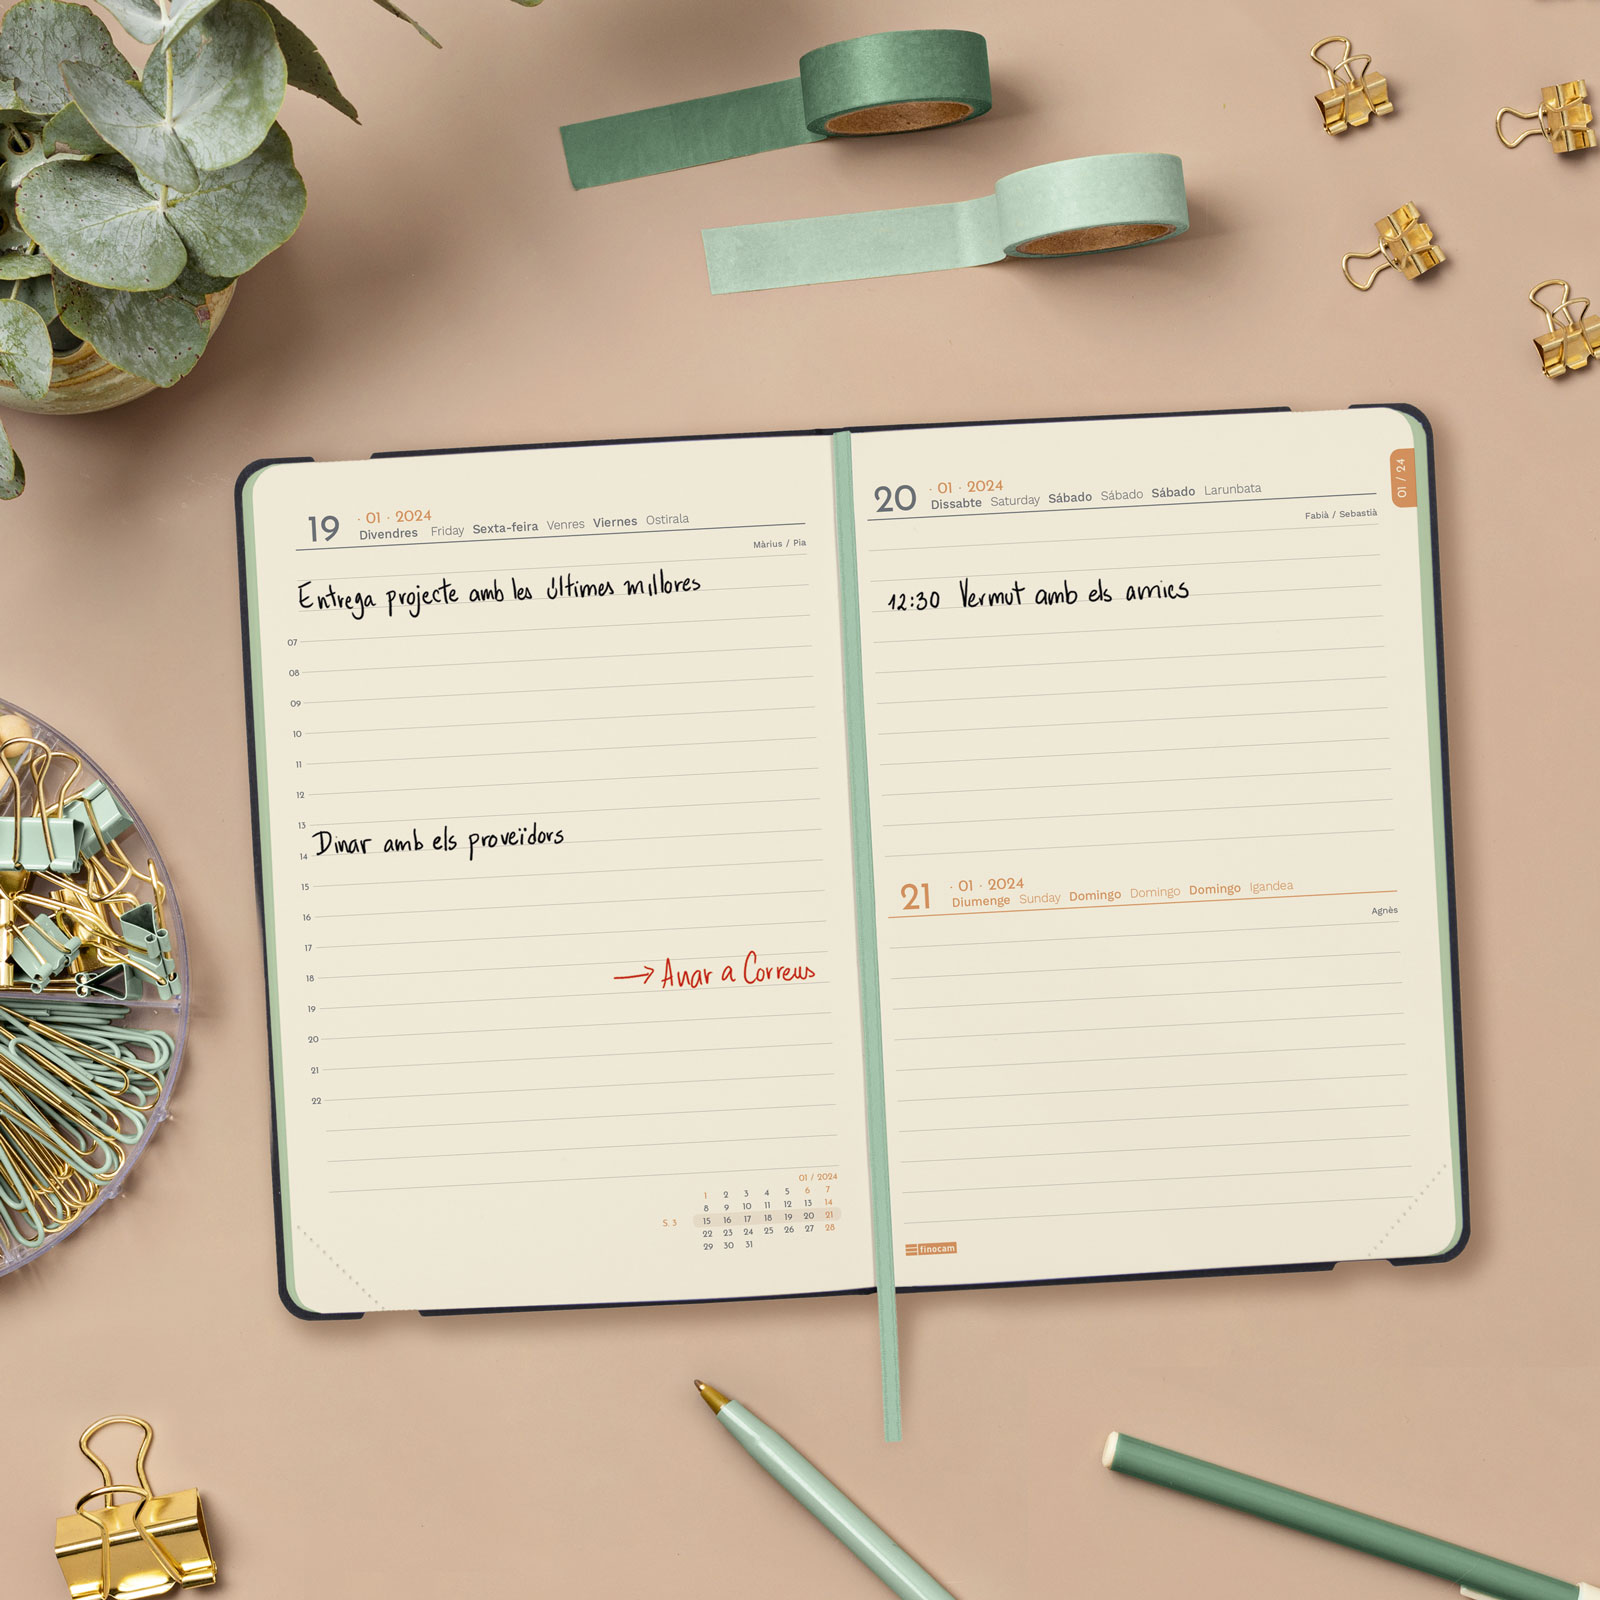 19 · 01 · 2024
Divendres Friday Sexta-feira Venres Viernes Ostirala
Màrius / Pia
Entrega projecte amb les últimes millores
07
08
09
10
11
12
13
Dinar amb els proveïdors
14
15
16
17
18 → Anar a Correus
19
20
21
22
01 / 2024
1 2 3 4 5 6 7
8 9 10 11 12 13 14
S. 3 15 16 17 18 19 20 21
22 23 24 25 26 27 28
29 30 31
20 · 01 · 2024
Dissabte Saturday Sábado Sábado Sábado Larunbata
Fabià / Sebastià
01 / 24
12:30 Vermut amb els amics
21 · 01 · 2024
Diumenge Sunday Domingo Domingo Domingo Igandea
Agnès
finocam